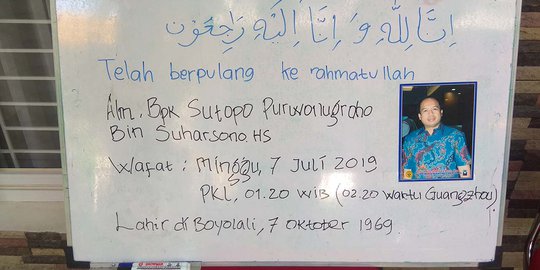 إنا لله و إنا إليه راجعون
Telah berpulang ke rahmatullah
Alm. Bpk Sutopo Purwonugroho
Bin Suharsono. HS
Wafat : Minggu, 7 Juli 2019
PKL, 01.20 WIB (02.20 Waktu Guangzhou)
Lahir di Boyolali, 7 Oktober 1969